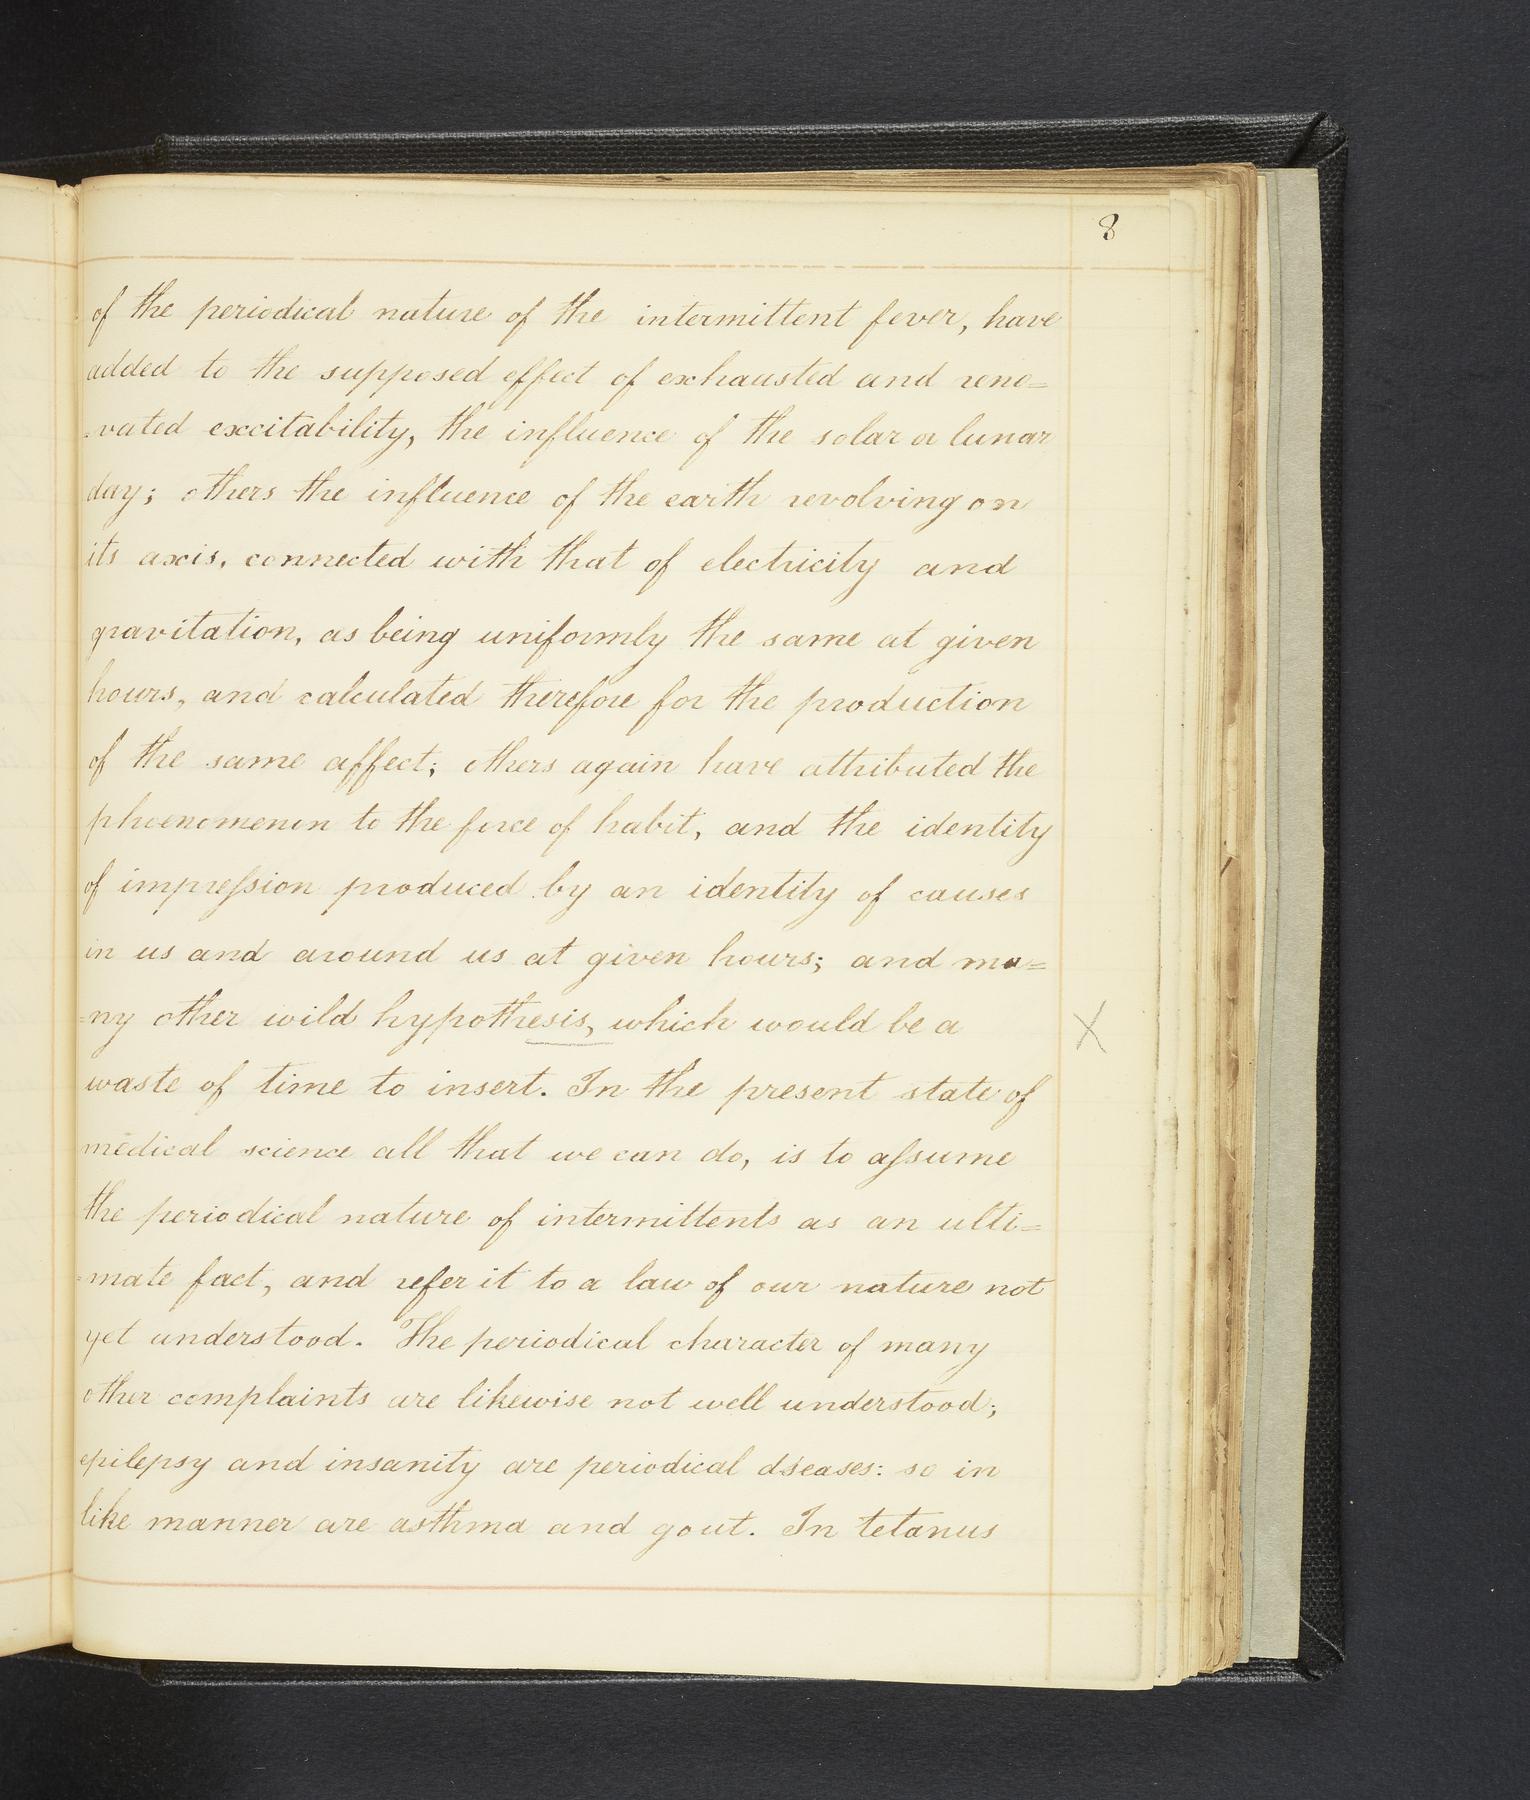 8
of the periodical nature of the intermittent fever, have
added to the supposed effect of exhausted and reno=
=vated excitability, the influence of the solar or lunar
day; others the influence of the earth revolving on
its axis, connected with that of electricity and
gravitation, as being uniformly the same at given
hours, and calculated therefore for the production
of the same affect; others again have attributed the
phoenomenon to the force of habit, and the identity
of impreſsion produced by an identity of causes
in us and around us at given hours; and ma=
=ny other wild hypothesis, which would be a
X
waste of time to insert. In the present state of
medical science all that we can do, is to aſsume
the periodical nature of intermittents as an ulti=
=mate fact, and refer it to a law of our nature not
yet understood. The periodical character of many
other complaints are likewise not well understood;
epilepsy and insanity are periodical dseases: so in
like manner are asthma and gout. In tetanus